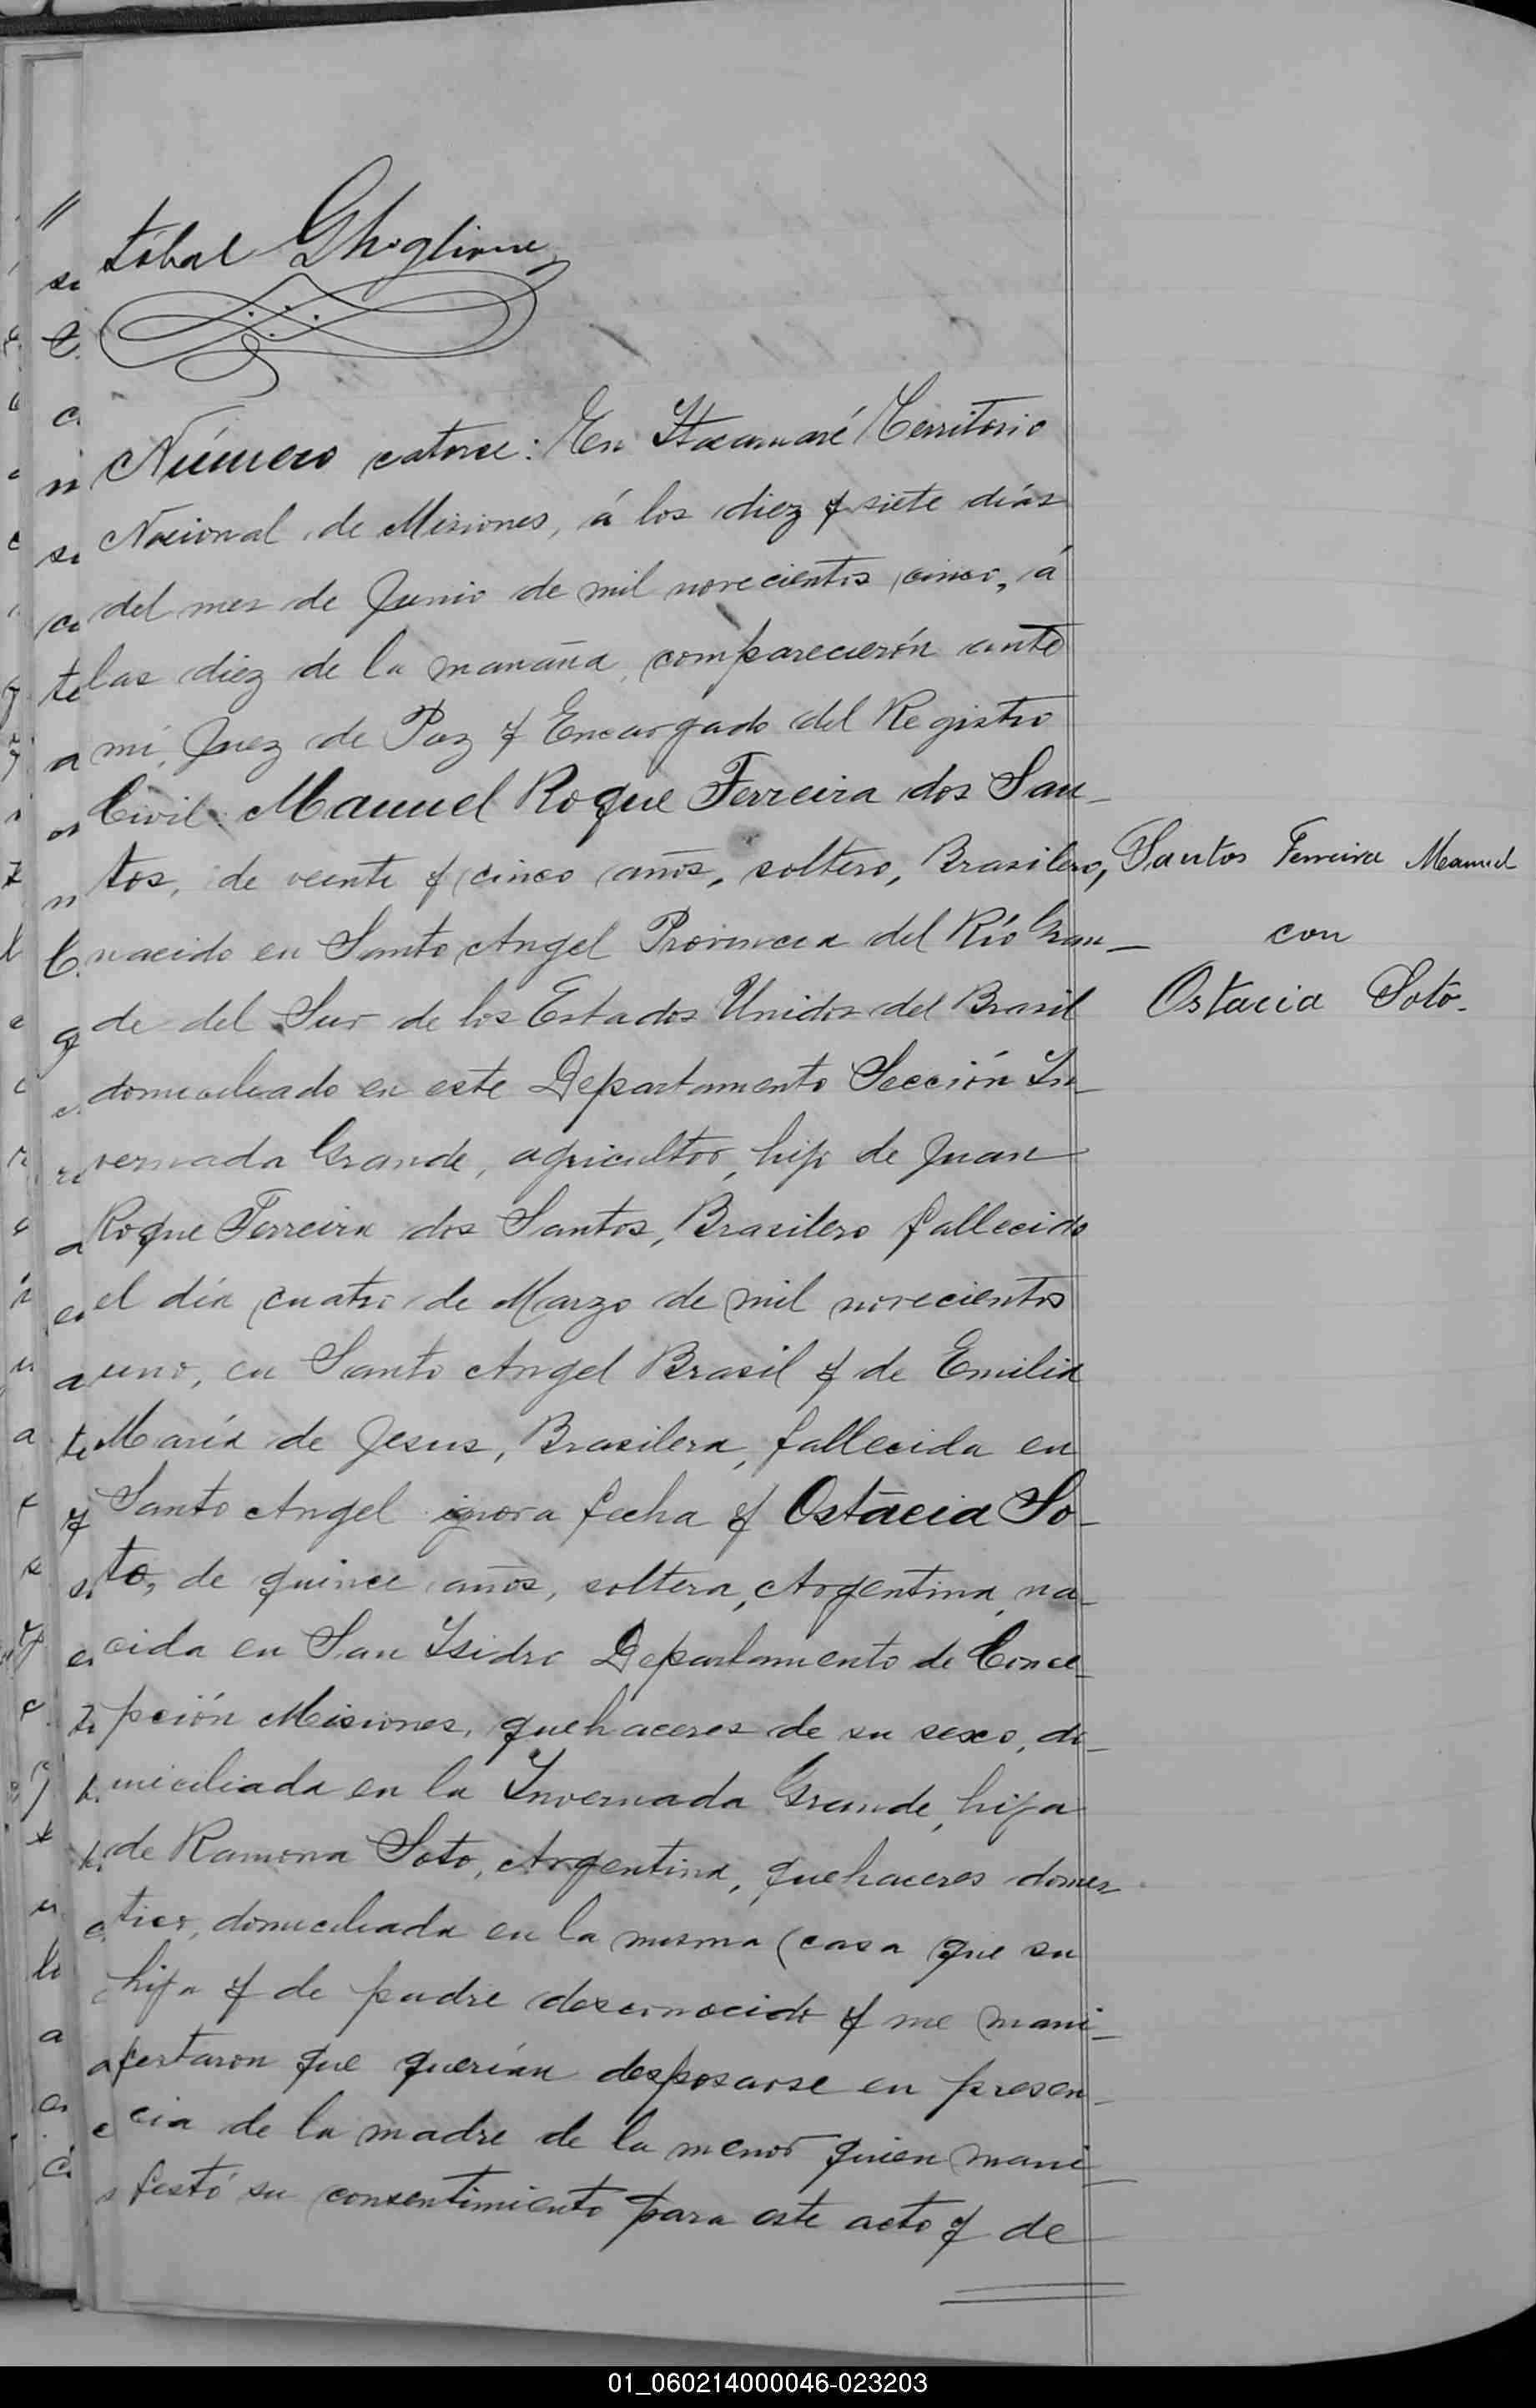 tóbal Ghiglione
Número catorce: En Itacaruaré Territorio
Nacional de Misiones, á los diez y siete días
del mes de Junio de mil novecientos cinco, á
las diez de la manaña, comparecierón ante
mí, Juez de Paz y Encargado del Registro
Civil: Manuel Roque Ferreira dos San-
tos, de veinte y cinco años, soltero, Brasilero,
nacido en Santo Angel Provincia del Río Gran-
de del Sur de los Estados Unidos del Brasil
domiciliado en este Departamento Sección In-
vernada Grande, agricultor, hijo de Juan
Roque Ferreira dos Santos, Brasilero fallecido
el día cuatro de Marzo de mil novecientos
uno, en Santo Angel Brasil y de Emilia
María de Jesus, Brasilera, fallecida en
Santo Angel ignora fecha y Ostacia So-
to, de quince años, soltera, Argentina, na-
cida en San Isidro Departamento de Conce-
pción Misiones, quehaceres de su sexo, do-
miciliada en la Invernada Grande, hija
de Ramona Soto, Argentina, quehaceres domes
ticos, domiciliada en la misma casa que su
hija y de padre desconocido y me mani-
festaron que querían desposarse en presen-
cia de la madre de la menor quien mani-
festó su consentimiento para este acto y de
Santos Ferreira Manuel
con
Ostacia Soto.
01_060214000046-023203